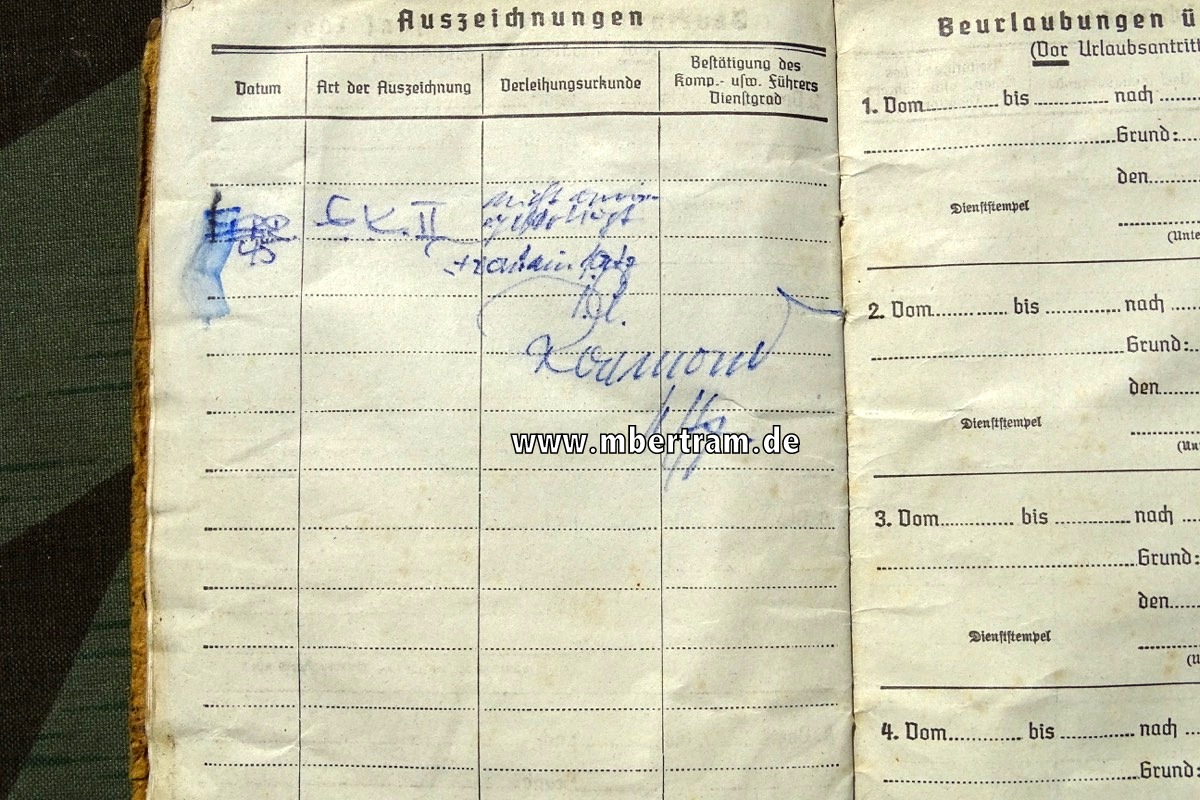 Auszeichnungen
Datum
Art der Auszeichnung
Verleihungsurkunde
Bestätigung des
Komp.- usw. Führers
Dienstgrad
45
E.K. II
nicht
Uffz.
www.mbertram.de
Beurlaubungen ü
(Vor Urlaubsantritt
1. Vom bis nach
Grund:
den
Dienststempel
(Unte
2. Vom bis nach
Grund:
den
Dienststempel
(Un
3. Vom bis nach
Grund:
den
Dienststempel
(U
4. Vom bis nach
Grund: